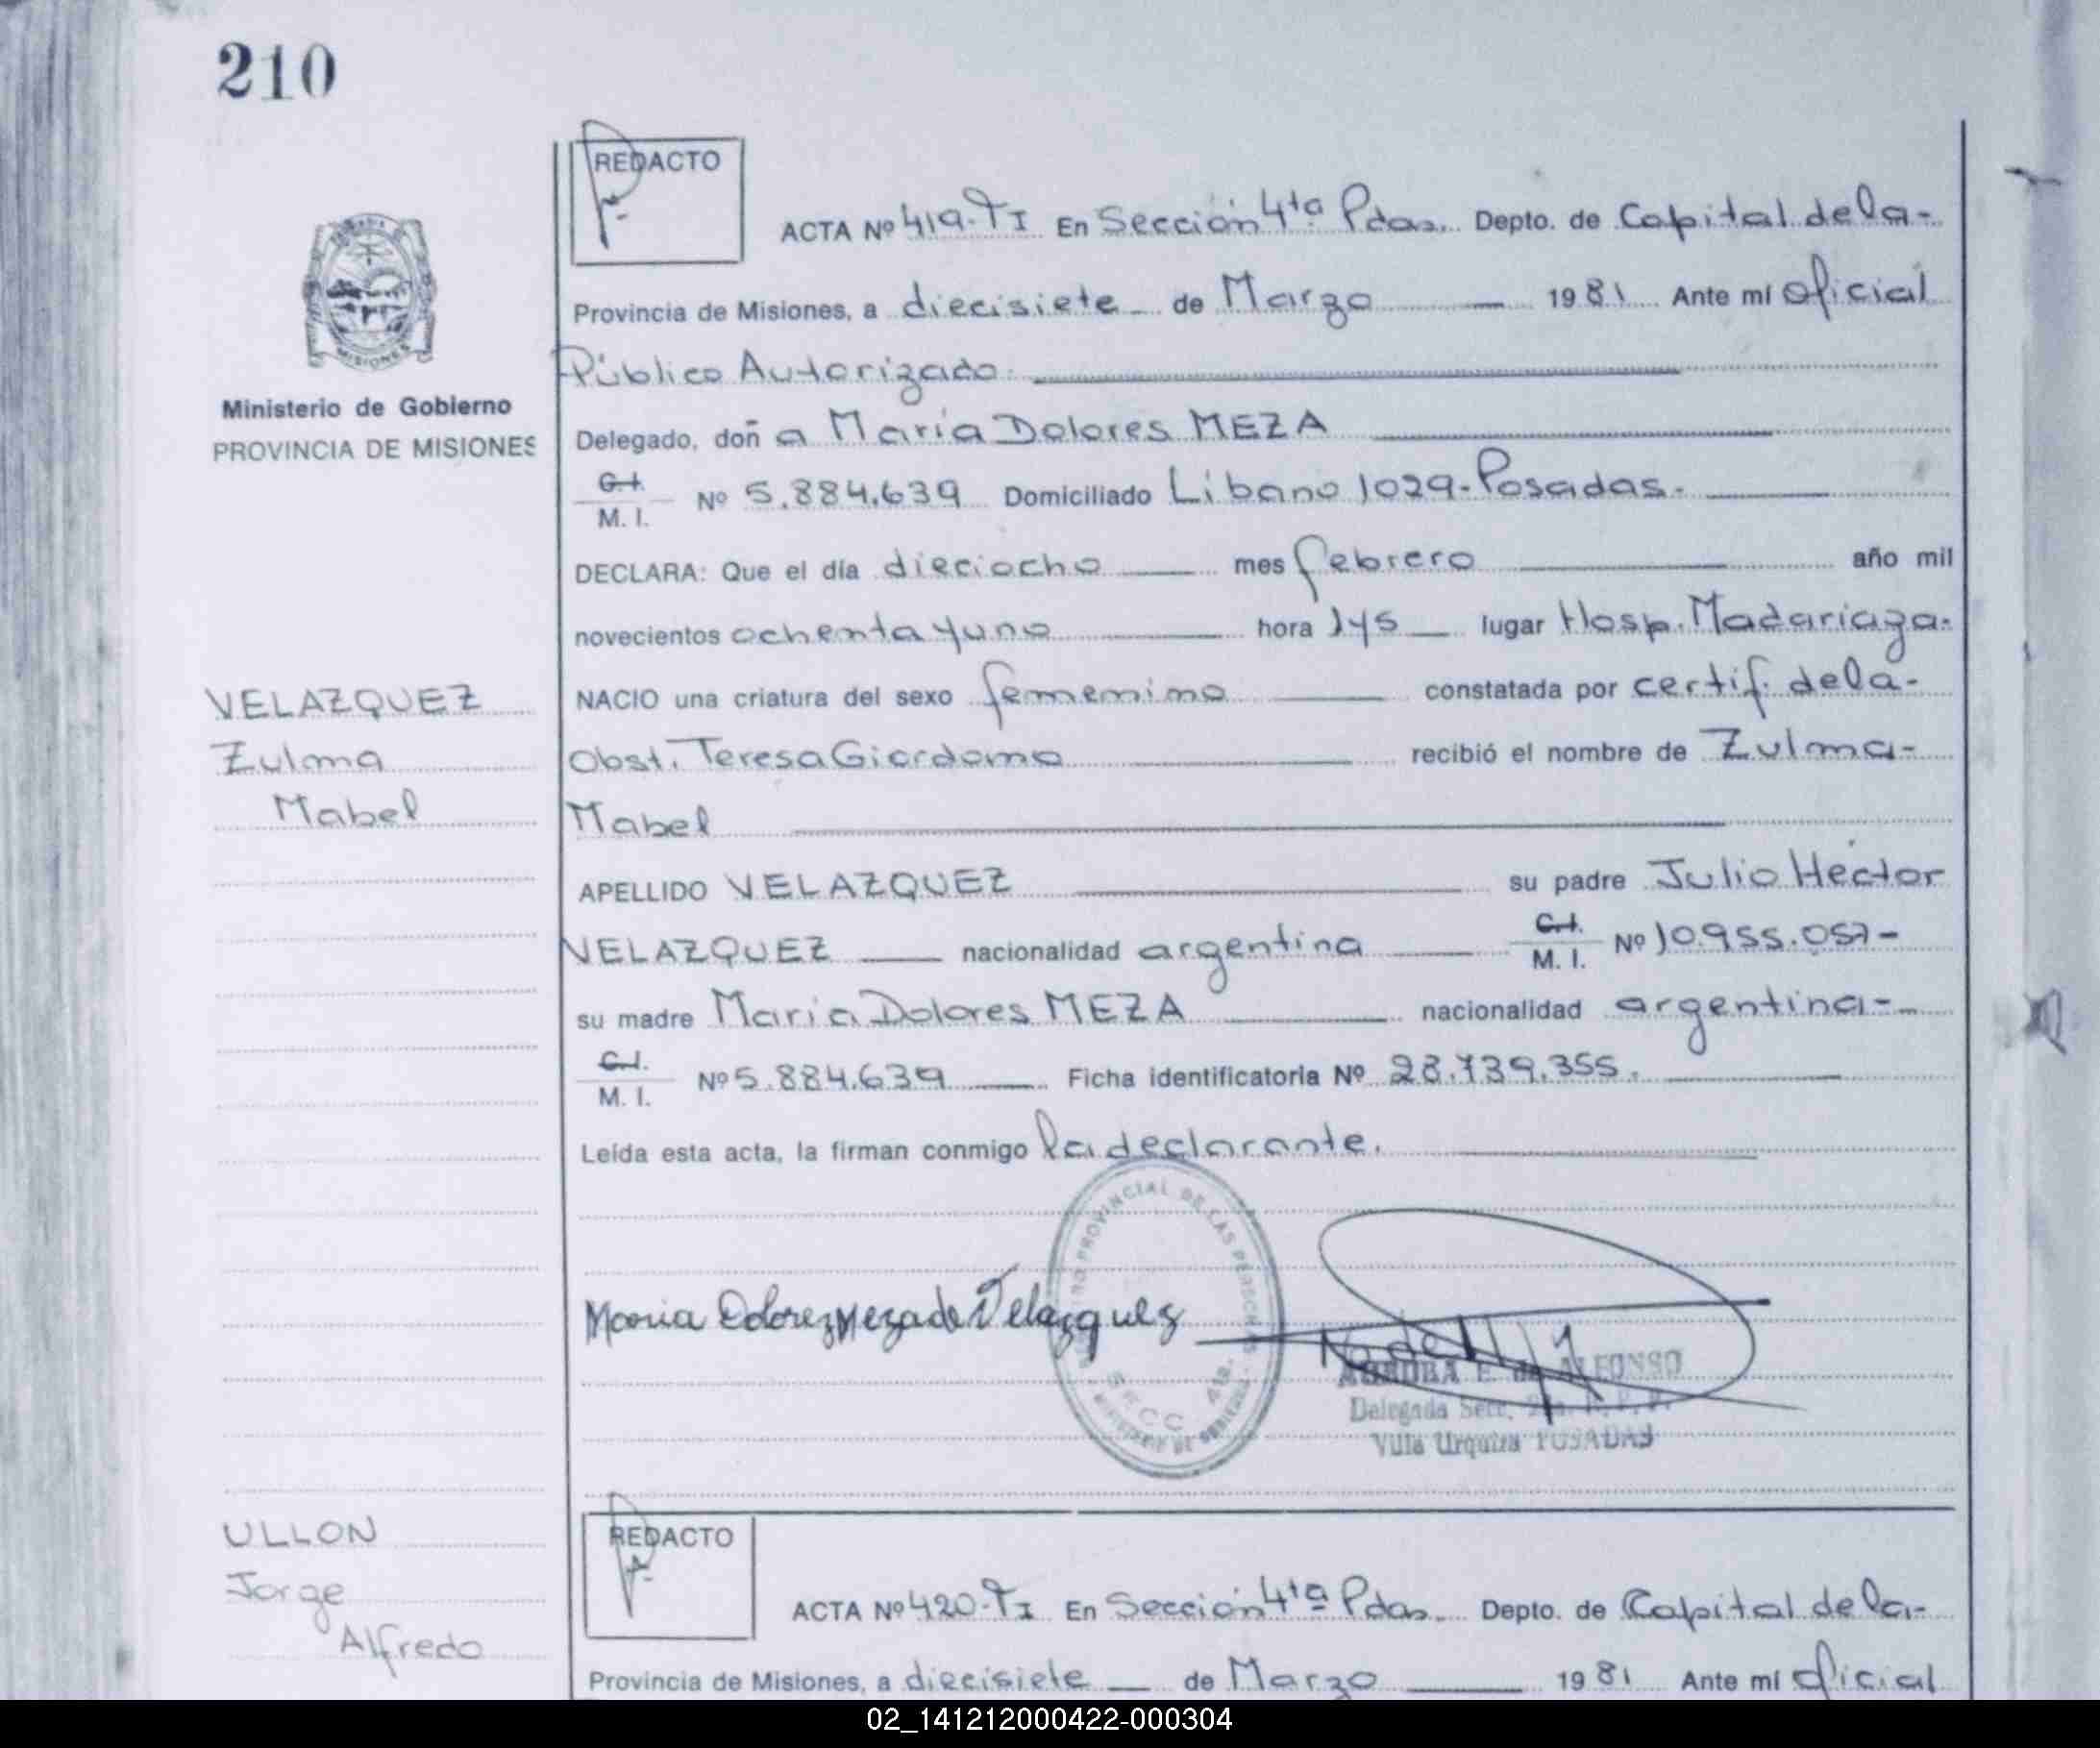 210
REDACTO
ACTA Nº 419-TI En Sección 4ta Pdas. Depto. de Capital de la-
Provincia de Misiones, a diecisiete de Marzo 1981 Ante mí Oficial
Público Autorizado.
Ministerio de Gobierno
PROVINCIA DE MISIONES
Delegado, doña Maria Dolores MEZA
C.I.
M. I. Nº 5.884.639 Domiciliado Libano 1029-Posadas.
DECLARA: Que el día dieciocho mes febrero año mil
novecientos ochenta y uno hora 145 lugar Hosp. Madariaga.
VELAZQUEZ
Zulma
Mabel
NACIO una criatura del sexo femenino constatada por certif. de la-
Obst. Teresa Giordano recibió el nombre de Zulma-
Mabel
APELLIDO VELAZQUEZ su padre Julio Héctor
VELAZQUEZ nacionalidad argentina C.I. M. I. Nº 10.955.057-
su madre Maria Dolores MEZA nacionalidad argentina-
C.I.
M. I. Nº 5.884.639 Ficha identificatoria Nº 28.739.355.
Leída esta acta, la firman conmigo la declarante.
PROVINCIAL DE LAS PERSONAS
Maria Dolorez Meza de Velazquez
AURORA E. de ALFONSO
Delegada Secc.
Villa Urquiza POSADAS
ULLON
Jorge
Alfredo
REDACTO
ACTA Nº 420-TI En Sección 4ta Pdas. Depto. de Capital de la-
Provincia de Misiones, a diecisiete de Marzo 1981 Ante mí Oficial
02_141212000422-000304